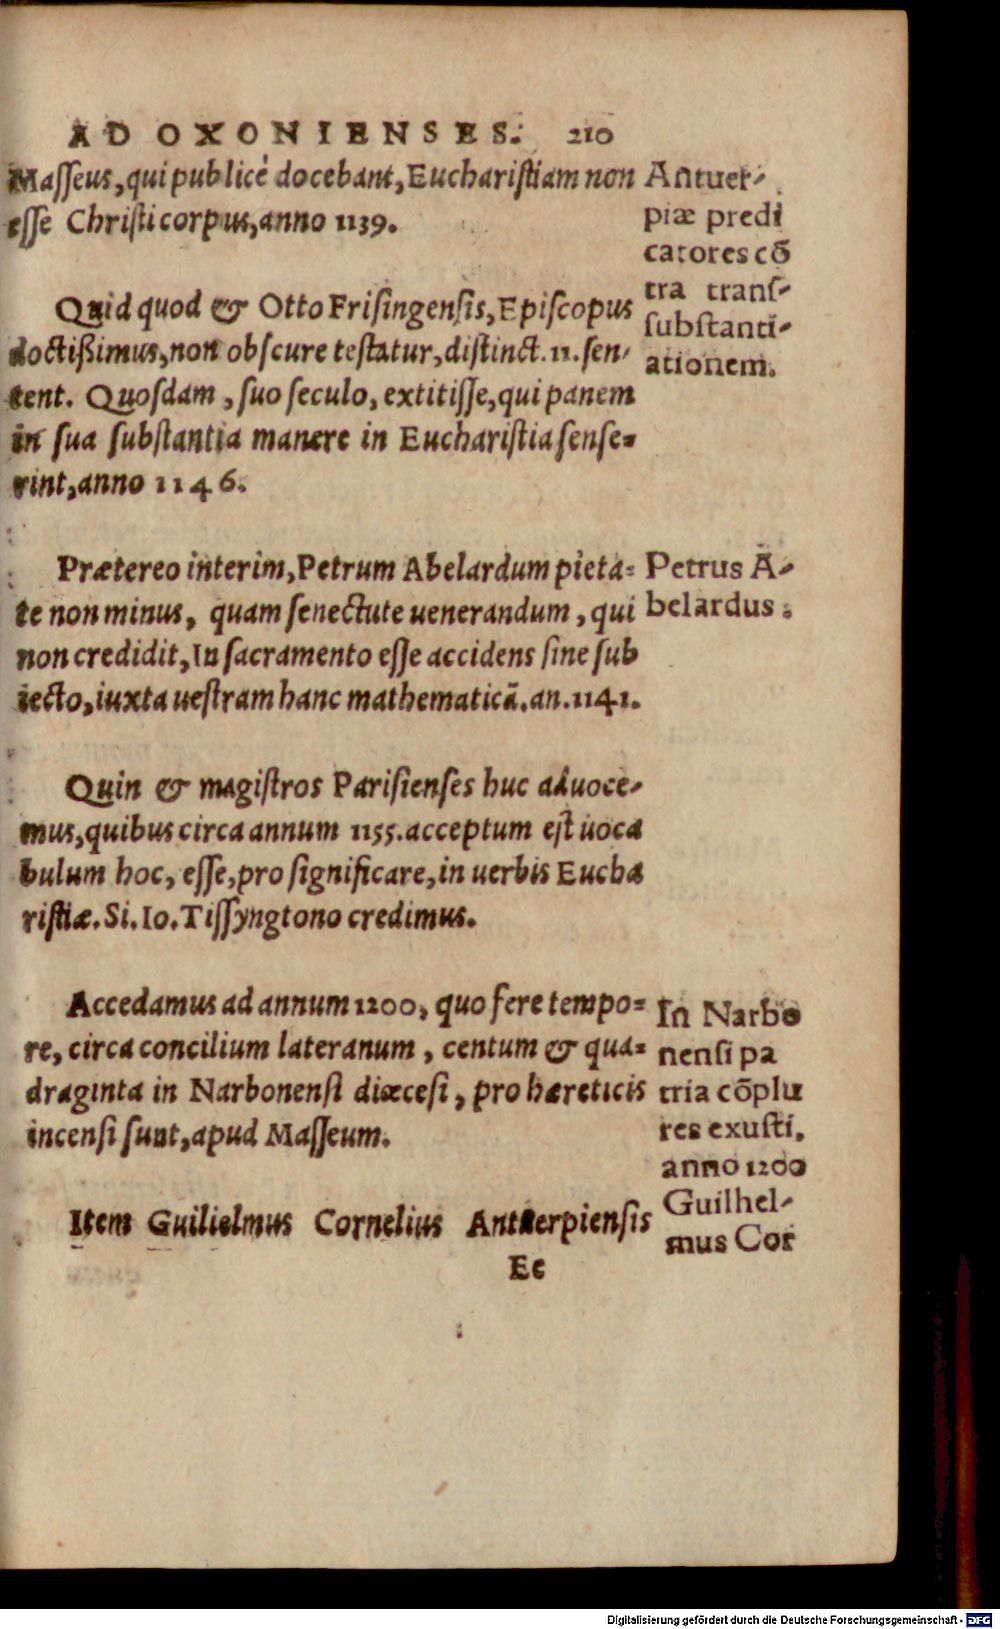 AD OXONIENSES. 210
Masseus, qui publicè docebant, Eucharistiam non
esse Christi corpus, anno 1139.
Antuer-
piæ predi
catores cõ
tra trans-
substanti-
ationem.
Quid quod & Otto Frisingensis, Episcopus
doctißimus, non obscure testatur, distinct. 11. sen-
tent. Quosdam, suo seculo, extitisse, qui panem
in sua substantia manere in Eucharistia sense=
rint, anno 1146.
Prætereo interim, Petrum Abelardum pieta=
te non minus, quam senectute uenerandum, qui
non credidit, In sacramento esse accidens sine sub
iecto, iuxta uestram hanc mathematicã. an. 1141.
Petrus A-
belardus.
Quin & magistros Parisienses huc aduoce-
mus, quibus circa annum 1155. acceptum est uoca
bulum hoc, esse, pro significare, in uerbis Eucha
ristiæ. Si. Io. Tissyngtono credimus.
Accedamus ad annum 1200, quo fere tempo=
re, circa concilium lateranum, centum & qua=
draginta in Narbonensi diœcesi, pro hæreticis
incensi sunt, apud Masseum.
In Narbo
nensi pa
tria cõplu
res exusti,
anno 1200
Item Guilielmus Cornelius Antuerpiensis
Guilhel-
mus Cor
Ee
Digitalisierung gefördert durch die Deutsche Forschungsgemeinschaft - DFG